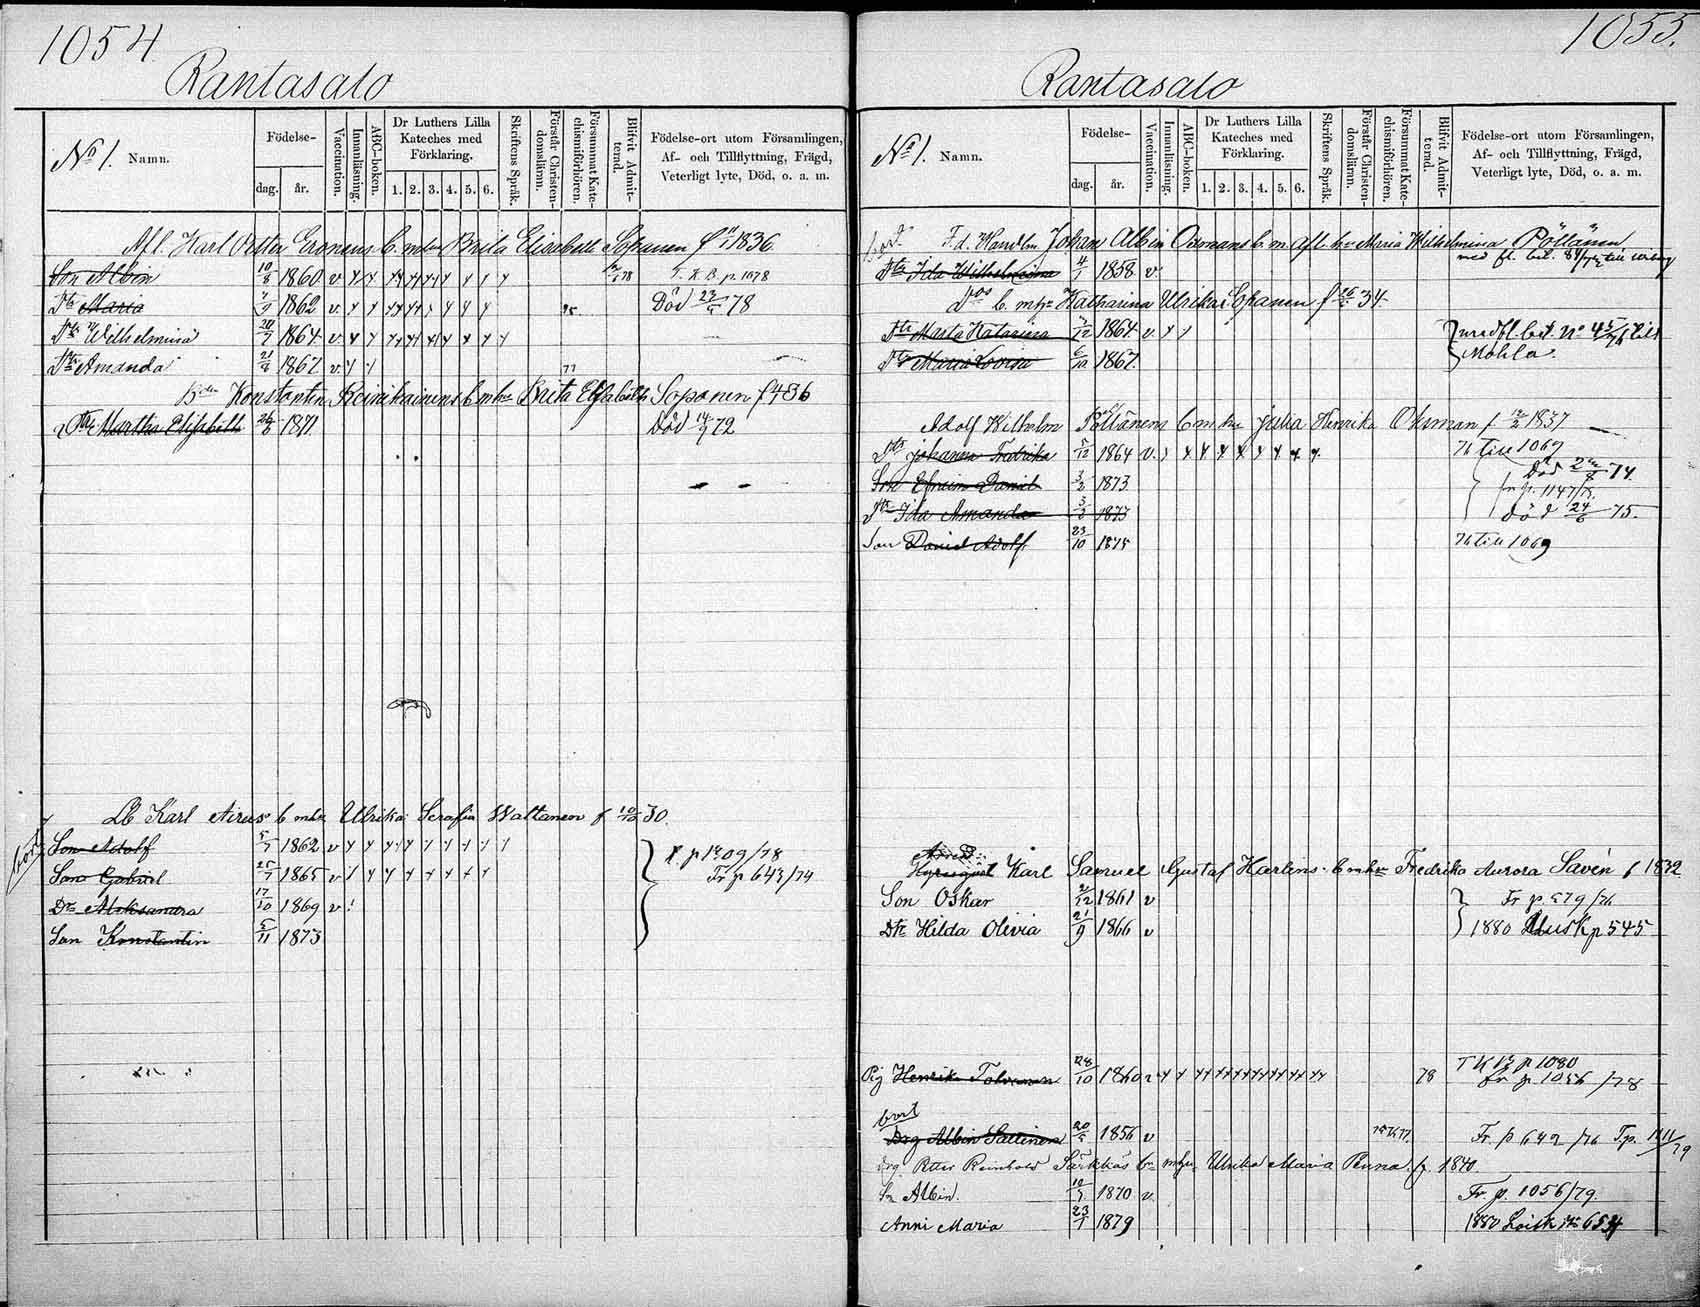 1054
Rantasalo
No 1. Namn.
Födelse-
dag.
år.
Vaccination.
Innanläsning.
ABC-boken.
Dr Luthers Lilla
Kateches med
Förklaring.
1. 2. 3. 4. 5. 6.
Skriftens Språk.
Förstår Christen-
domsläran.
Försummat Kate-
chismiförhören.
Blifvit Admit-
terad.
Födelse-ort utom Församlingen,
Af- och Tillflyttning, Frägd,
Veterligt lyte, Död, o. a. m.
Afl. Karl Petter Eronens b. m hu Brita Elisabeth Sopanen f 1836
Son Albin 10/8 1860 v 78 T. K. B. p. 1078
Dtr Maria 1862 v 75 Död 78
Dtr Wilhelmina 20/7 1864 v
Dtr Amanda 21/4 1867 v 77
Konstantin Reinikainens b m hu Brita Elisabeth Soponen f 36
Dtr Martha Elisabeth 1871 Död 14/9 72
Lb Karl Airus b m hu Ulrika Serafia Waltanen f 10/10 30.
bort
Son Adolf 5/7 1862 v
Son Gabriel 25/7 1865 v
p 1209/78
Fr p 643/74
Dtr Aleksandra 17/10 1869 v
Son Konstantin 5/11 1873
1055.
Rantasalo
No 1. Namn.
Födelse-
dag.
år.
Vaccination.
Innanläsning.
ABC-boken.
Dr Luthers Lilla
Kateches med
Förklaring.
1. 2. 3. 4. 5. 6.
Skriftens Språk.
Förstår Christen-
domsläran.
Försummat Kate-
chismiförhören.
Blifvit Admit-
terad.
Födelse-ort utom Församlingen,
Af- och Tillflyttning, Frägd,
Veterligt lyte, Död, o. a. m.
bort F. d. Handlm Johan Albin b. m. afl. h Maria Wilhelmina Pöllänen
Dtr Ida Wilhelmina 4/1 1858 v
Dos b. m hu Katharina Ulrika Sopanen f 34
Dtr Marta Katarina 1864 v
med fl. bet. No 45/76 till
Mohla.
Dtr Maria Lovisa 6/10 1867
Adolf Wilhelm Pöllänens b m hu Julia Henrika Öhman f 12/2 1837
Dtr Johanna Fredrika 5/12 1864 v 76 till 1069
Son Efraim Daniel 3/2 1873 Död 74
fr p. 1147/75
Dtr Ida Amanda 3/2 1873 död 24/6 75.
Son Daniel Adolf 23/10 1875 76 till 1069
Arved
Karl Samuel Gustaf Karlins b m hu Fredrika Aurora Savén f 1832
Son Oskar 2/12 1861 v Fr p 579/76
Dtr Hilda Olivia 21/9 1866 v 1880 Lusk p 545
Pig Henrika Tolvanen 28/10 1860 v 78 T K B p 1080
fr p 1056/78
bort
Drg Albin Sallinen 20/5 1856 v 75 76 77 Fr. p 642/76 T. p. 1111/79
Drg Petter Reinhold Särkkäs b. m hu Ulrika Maria Penna f. 1840
Sn Albin. 10/7 1870 v Fr. p. 1056/79.
Anni Maria 23/1 1879 1880 Loisk 654